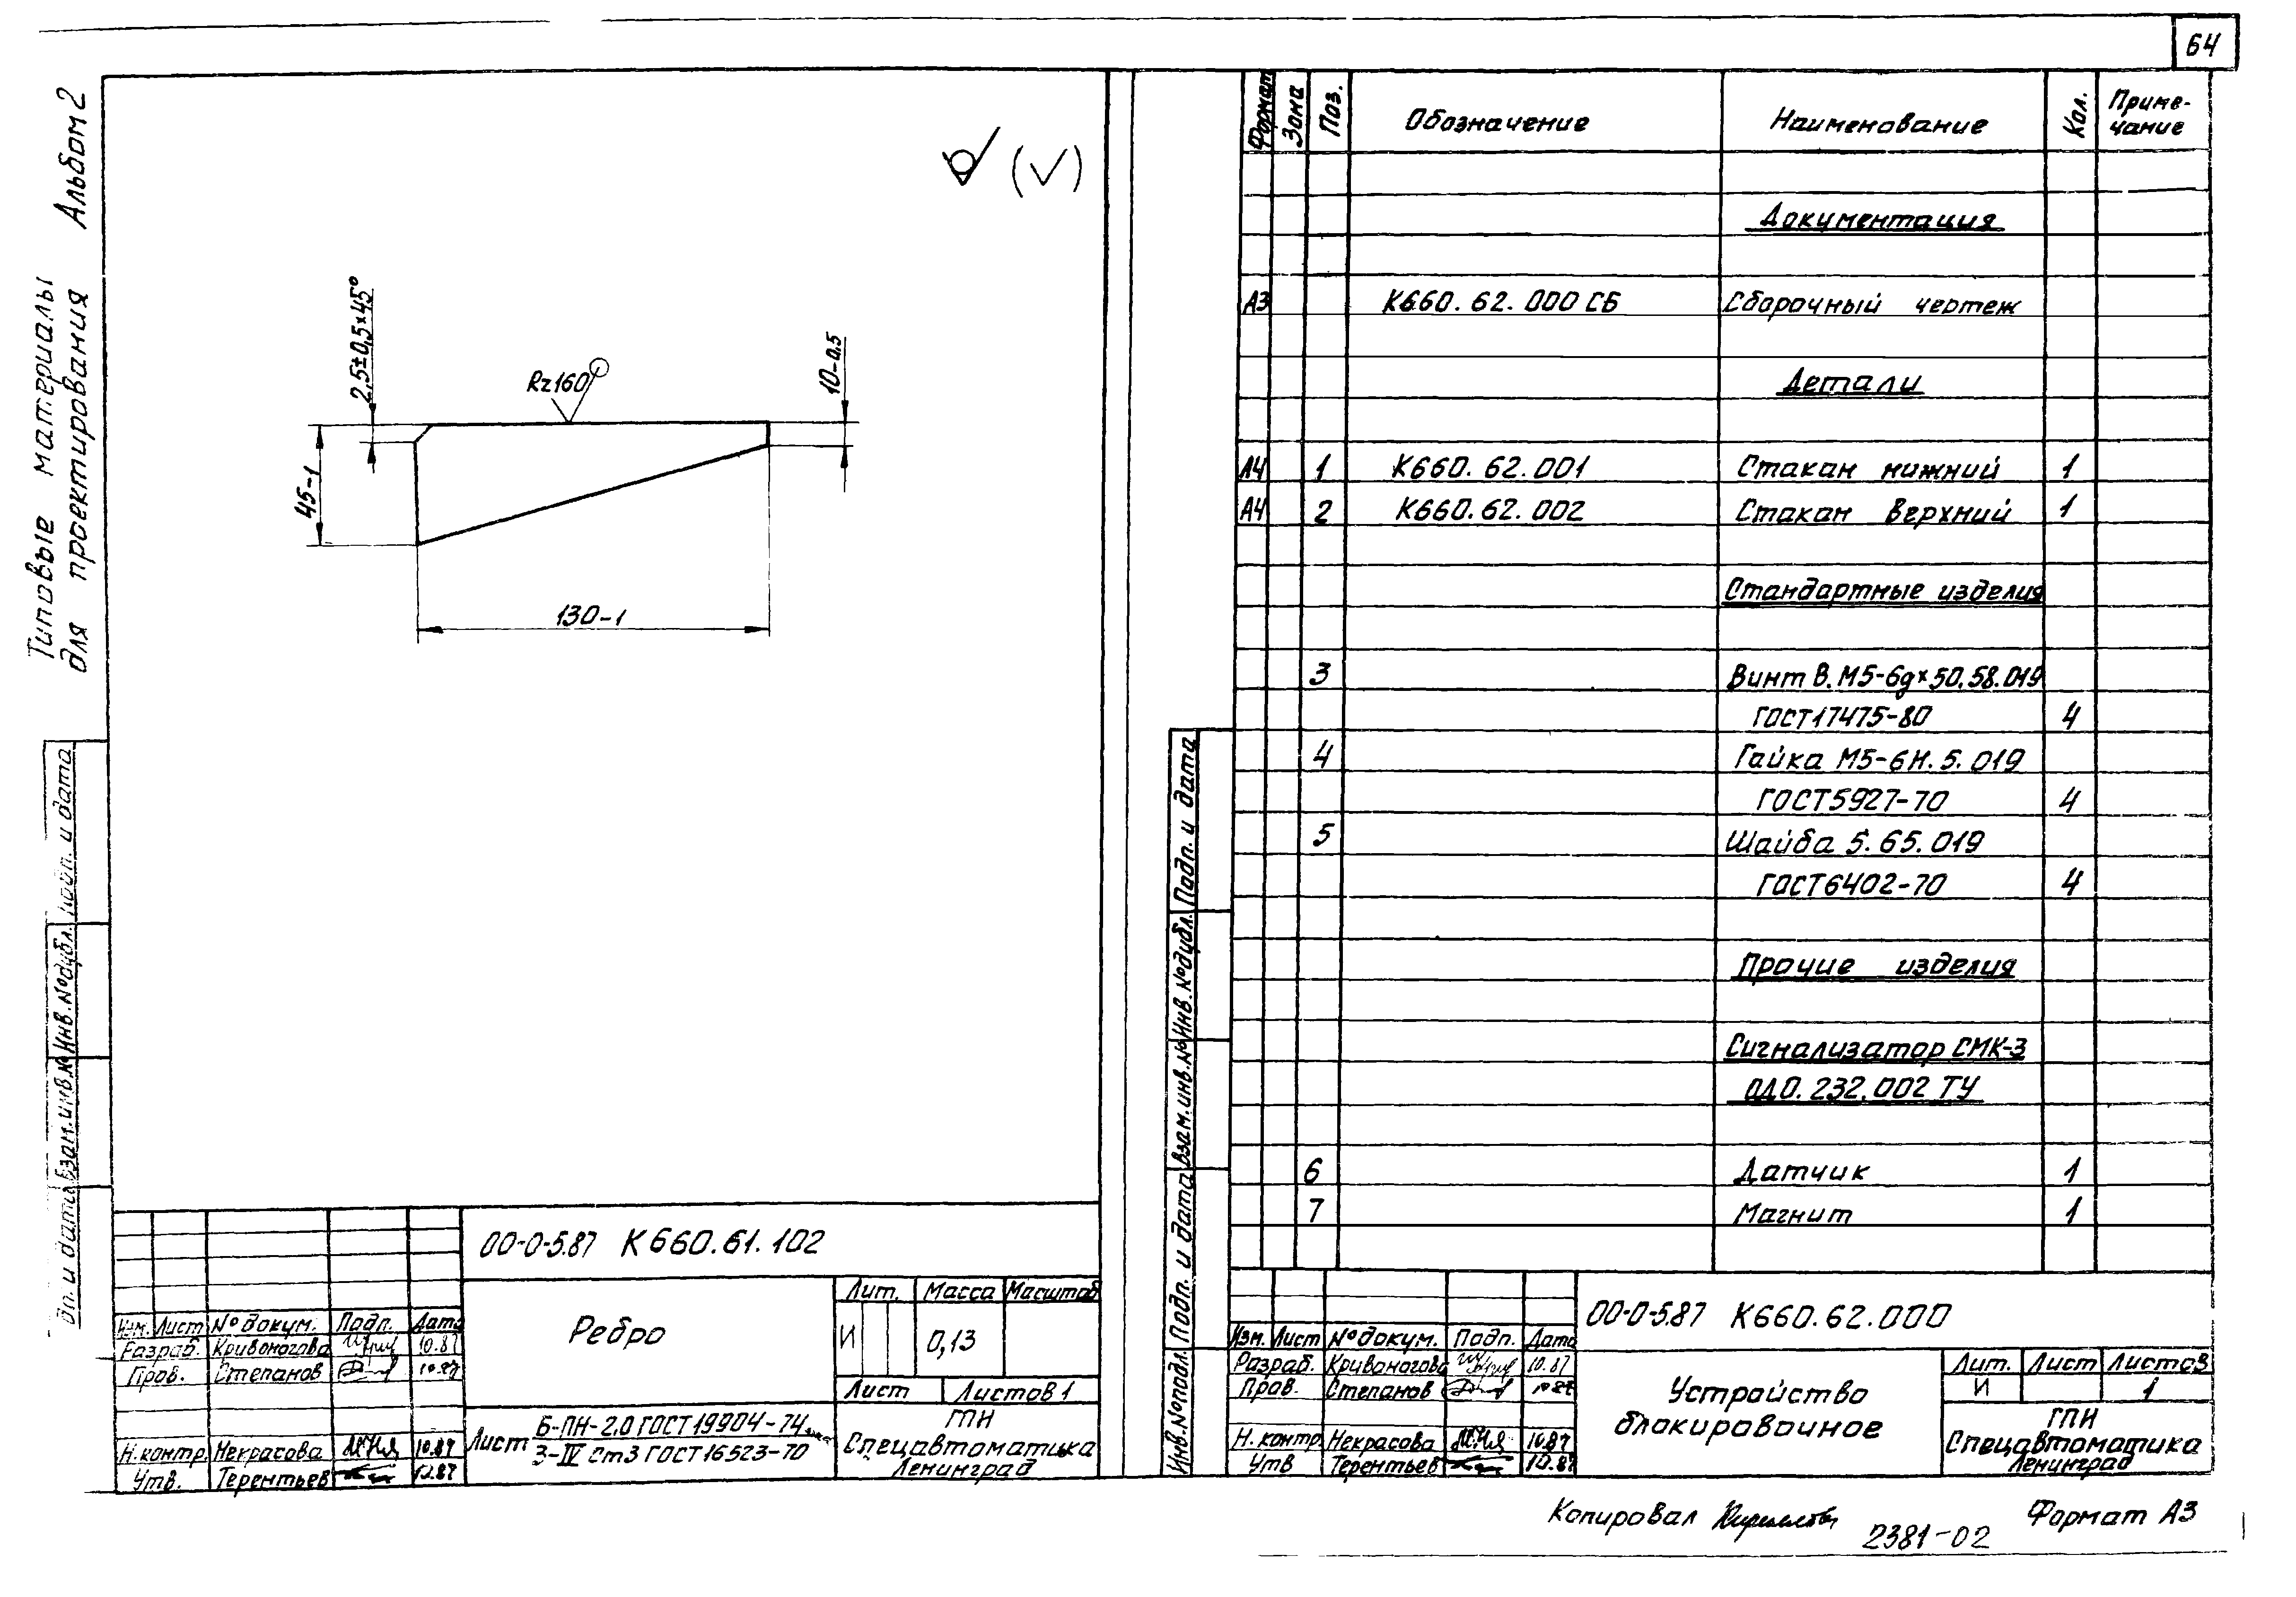 64
Типовые материалы
для проектирования Альбом 2
(√)
2,5±0,5×45°
Rz160
10-0,5
45-1
130-1
Подп. и дата
Инв.№дубл.
Взам.инв.№
дп. и дата
00-0-5.87 К660.61.102
Изм. Лист №докум. Подп. Дата
Разраб. Кривоногова 10.87
Пров. Степанов 10.87
Н.контр. Некрасова 10.87
Утв. Терентьев 10.87
Ребро
Лит. Масса Масштаб
И 0,13
Лист Листов 1
Лист Б-ПН-2.0 ГОСТ 19904-74
3-IV Ст3 ГОСТ 16523-70
ГПИ
Спецавтоматика
Ленинград
Формат Зона Поз. Обозначение Наименование Кол. Приме-
чание
Документация
А3 К660.62.000 СБ Сборочный чертеж
Детали
А4 1 К660.62.001 Стакан нижний 1
А4 2 К660.62.002 Стакан верхний 1
Стандартные изделия
3 Винт В.М5-6g×50.58.019
ГОСТ17475-80 4
4 Гайка М5-6Н.5.019
ГОСТ5927-70 4
5 Шайба 5.65.019
ГОСТ6402-70 4
Прочие изделия
Сигнализатор СМК-3
ОД0.232.002 ТУ
6 Датчик 1
7 Магнит 1
Подп. и дата
Инв.№дубл.
Взам.инв.№
Подп. и дата
Инв.№подл.
00-0-5.87 К660.62.000
Изм. Лист №докум. Подп. Дата
Разраб. Кривоногова 10.87
Пров. Степанов 10.87
Н.контр. Некрасова 10.87
Утв Терентьев 10.87
Устройство
блокировочное
Лит. Лист Листов
И 1
ГПИ
Спецавтоматика
Ленинград
Копировал
2381-02
Формат А3